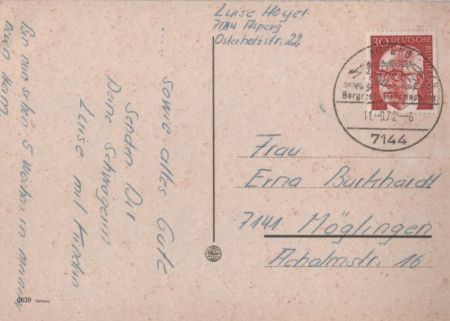 Luise Hoyer
7144 Asperg
Osterholzstr. 22
30 DEUTSCHE BUNDESPOST
11.-9.72.-6
7144
... sowie alles Gute
senden Dir
Deine Schwägerin
Luise mit Kindern
Bin nun schon 5 Wochen in meinem
neuen Heim.
Frau
Erna Burkhardt
7141 Möglingen
Achalmstr. 16
0639